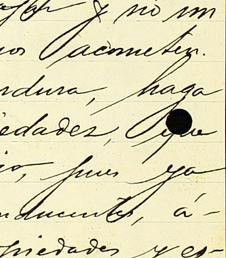 y no un
os acometer.
rdura, haga
iedades, que
io, pues ya
nducente, á-
piedades y es-